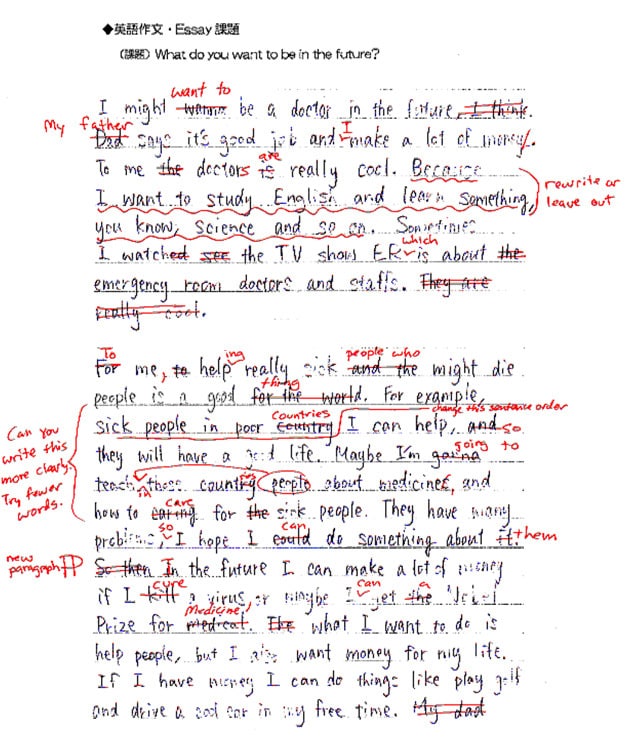 ◆英語作文・Essay 課題
(課題) What do you want to be in the future?
want to
I might wanna be a doctor in the future, I think.
My father I
Dad says it's good job and make a lot of money.
are
To me the doctors is really cool. Because
I want to study English and learn something,
rewrite or
leave out
you know, science and so on. Sometimes
which
I watched see the TV show ER is about the
emergency room doctors and staffs. They are
really cool.
To ing people who
For me, to help really sick and the might die
thing
people is a good for the world. For example,
Countries change this sentence order
sick people in poor country I can help, and so
Can you
write this
more clearly.
Try fewer
words.
going to
they will have a good life. Maybe I'm gonna
in
teach those country people about medicines, and
care
how to caring for the sick people. They have many
so can
problems, I hope I could do something about it. them
new
paragraph
So then In the future I can make a lot of money
cure can a
if I kill a virus, or maybe I get the Nobel
Medicine,
Prize for medical. The what I want to do is
help people, but I also want money for my life.
If I have money I can do things like play golf
and drive a cool car in my free time. My dad